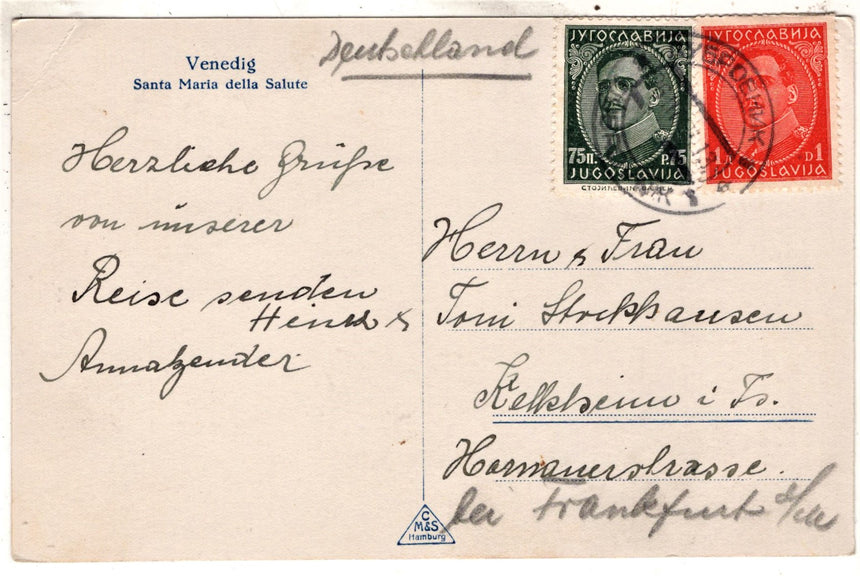 Venedig
Santa Maria della Salute
Deutschland
Herzliche Grüße
von unserer
Reise senden
Heinz &
Anna
ЈУГОСЛАВИЈА
75П. Р.75
JUGOSLAVIJA
ЈУГОСЛАВИЈА
1Д D1
JUGOSLAVIJA
Herrn & Frau
Toni Stockhausen
Kelkheim i Ts.
Hornauerstrasse.
bei Frankfurt a/M
C
M&S
Hamburg